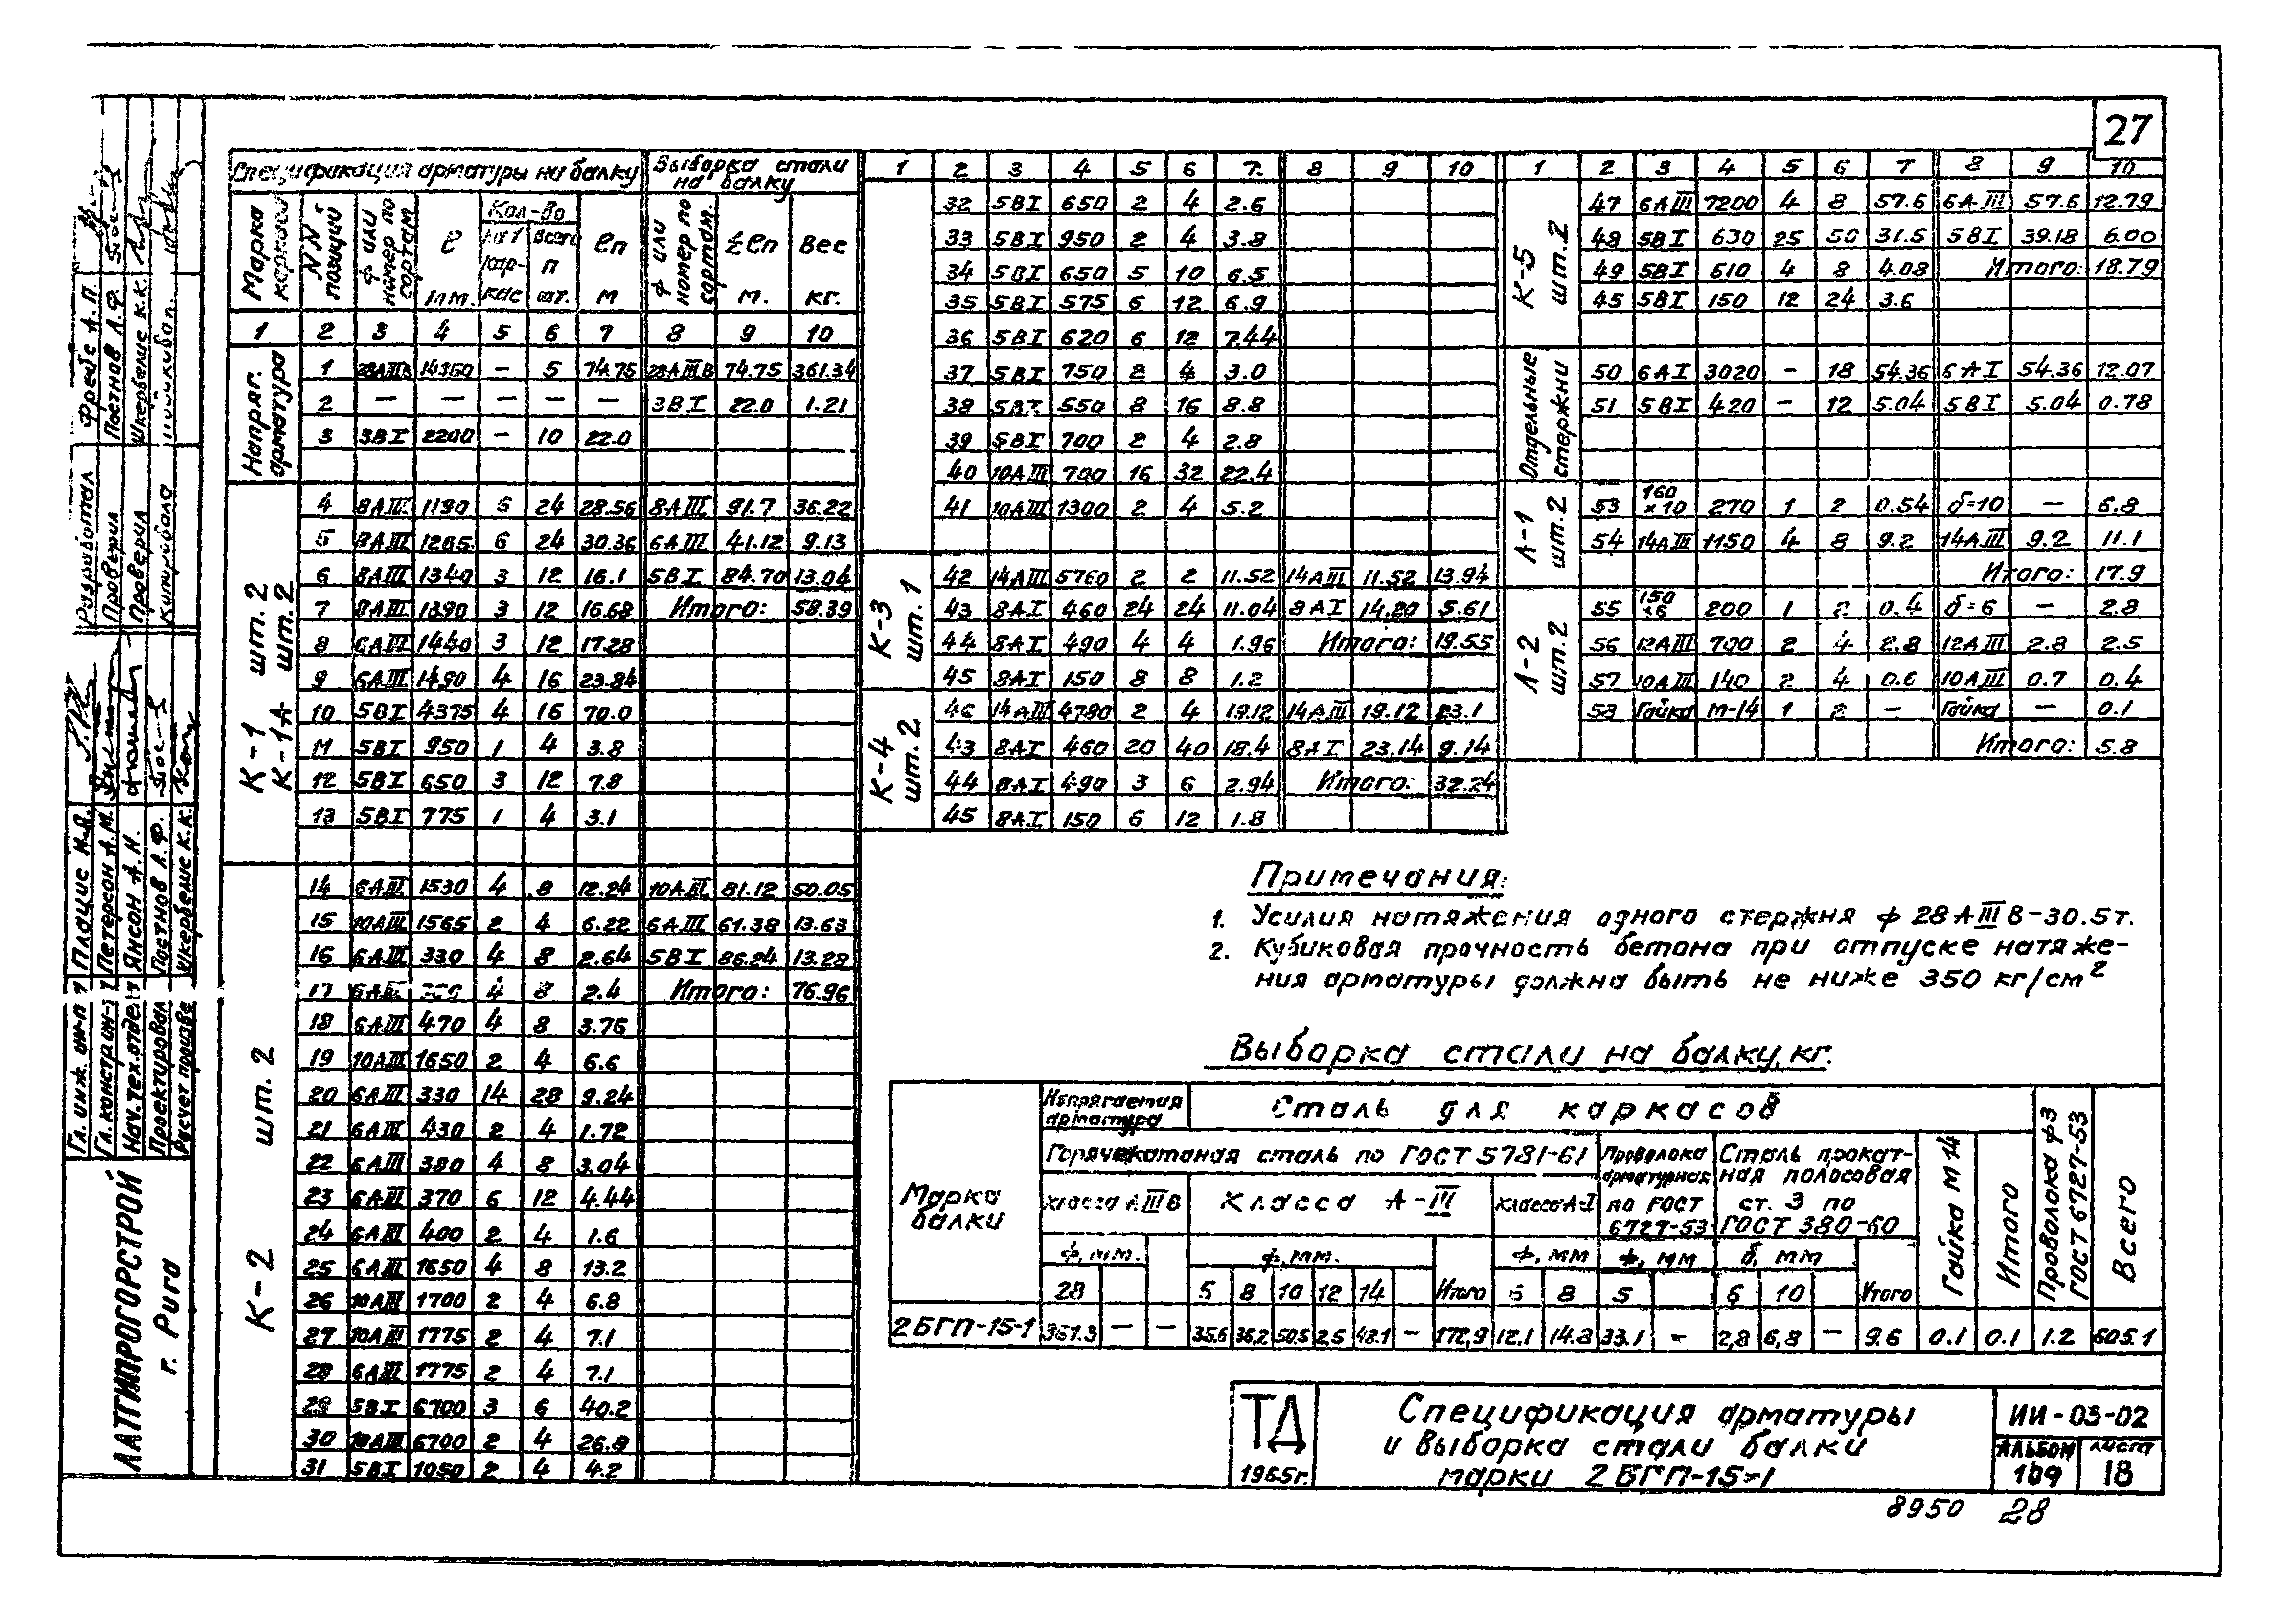 27
Спецификация арматуры на балку | Выборка стали на балку
Марка каркаса | NN позиций | ф или номер по сортам | ℓ мм. | Кол-во на 1 каркас | Всего п шт. | ℓп м | ф или номер по сортам. | Σℓп м. | Вес кг.
1 | 2 | 3 | 4 | 5 | 6 | 7 | 8 | 9 | 10
Напряг. арматура
1 | 28АIIIВ | 14950 | – | 5 | 74.75 | 28АIIIВ | 74.75 | 361.34
2 | – | – | – | – | – | 3ВI | 22.0 | 1.21
3 | 3ВI | 2200 | – | 10 | 22.0
К-1 шт. 2
К-1А шт. 2
4 | 8АIII | 1190 | 6 | 24 | 28.56 | 8АIII | 91.7 | 36.22
5 | 8АIII | 1265 | 6 | 24 | 30.36 | 6АIII | 41.12 | 9.13
6 | 8АIII | 1340 | 3 | 12 | 16.1 | 5ВI | 84.70 | 13.04
7 | 8АIII | 1390 | 3 | 12 | 16.68 | Итого: | 58.39
8 | 6АIII | 1440 | 3 | 12 | 17.28
9 | 6АIII | 1490 | 4 | 16 | 23.84
10 | 5ВI | 4375 | 4 | 16 | 70.0
11 | 5ВI | 950 | 1 | 4 | 3.8
12 | 5ВI | 650 | 3 | 12 | 7.8
13 | 5ВI | 775 | 1 | 4 | 3.1
К-2 шт. 2
14 | 6АIII | 1530 | 4 | 8 | 12.24 | 10АIII | 81.12 | 50.05
15 | 10АIII | 1565 | 2 | 4 | 6.22 | 6АIII | 61.38 | 13.63
16 | 6АIII | 330 | 4 | 8 | 2.64 | 5ВI | 86.24 | 13.28
17 | 6АIII | 4 | 8 | 2.4 | Итого: | 76.96
18 | 6АIII | 470 | 4 | 8 | 3.76
19 | 10АIII | 1650 | 2 | 4 | 6.6
20 | 6АIII | 330 | 14 | 28 | 9.24
21 | 6АIII | 430 | 2 | 4 | 1.72
22 | 6АIII | 380 | 4 | 8 | 3.04
23 | 6АIII | 370 | 6 | 12 | 4.44
24 | 6АIII | 400 | 2 | 4 | 1.6
25 | 6АIII | 1650 | 4 | 8 | 13.2
26 | 10АIII | 1700 | 2 | 4 | 6.8
27 | 10АIII | 1775 | 2 | 4 | 7.1
28 | 6АIII | 1775 | 2 | 4 | 7.1
29 | 5ВI | 6700 | 3 | 6 | 40.2
30 | 10АIII | 6700 | 2 | 4 | 26.8
31 | 5ВI | 1050 | 2 | 4 | 4.2
1 | 2 | 3 | 4 | 5 | 6 | 7. | 8 | 9 | 10
32 | 5ВI | 650 | 2 | 4 | 2.6
33 | 5ВI | 950 | 2 | 4 | 3.8
34 | 5ВI | 650 | 5 | 10 | 6.5
35 | 5ВI | 575 | 6 | 12 | 6.9
36 | 5ВI | 620 | 6 | 12 | 7.44
37 | 5ВI | 750 | 2 | 4 | 3.0
38 | 5ВI | 550 | 8 | 16 | 8.8
39 | 5ВI | 700 | 2 | 4 | 2.8
40 | 10АIII | 700 | 16 | 32 | 22.4
41 | 10АIII | 1300 | 2 | 4 | 5.2
К-3 шт. 1
42 | 14АIII | 5760 | 2 | 2 | 11.52 | 14АIII | 11.52 | 13.94
43 | 8АI | 460 | 24 | 24 | 11.04 | 8АI | 14.20 | 5.61
44 | 8АI | 490 | 4 | 4 | 1.96 | Итого: | 19.55
45 | 8АI | 150 | 8 | 8 | 1.2
К-4 шт. 2
46 | 14АIII | 4780 | 2 | 4 | 19.12 | 14АIII | 19.12 | 23.1
43 | 8АI | 460 | 20 | 40 | 18.4 | 8АI | 23.14 | 9.14
44 | 8АI | 490 | 3 | 6 | 2.94 | Итого: | 32.24
45 | 8АI | 150 | 6 | 12 | 1.8
1 | 2 | 3 | 4 | 5 | 6 | 7 | 8 | 9 | 10
К-5 шт. 2
47 | 6АIII | 7200 | 4 | 8 | 57.6 | 6АIII | 57.6 | 12.79
48 | 5ВI | 630 | 25 | 50 | 31.5 | 5ВI | 39.18 | 6.00
49 | 5ВI | 510 | 4 | 8 | 4.08 | Итого: | 18.79
45 | 5ВI | 150 | 12 | 24 | 3.6
Отдельные стержни
50 | 6АI | 3020 | – | 18 | 54.36 | 6АI | 54.36 | 12.07
51 | 5ВI | 420 | – | 12 | 5.04 | 5ВI | 5.04 | 0.78
Л-1 шт. 2
53 | 160 ×10 | 270 | 1 | 2 | 0.54 | δ=10 | – | 6.8
54 | 14АIII | 1150 | 4 | 8 | 9.2 | 14АIII | 9.2 | 11.1
Итого: | 17.9
Л-2 шт. 2
55 | 150 ×6 | 200 | 1 | 2 | 0.4 | δ=6 | – | 2.8
56 | 12АIII | 700 | 2 | 4 | 2.8 | 12АIII | 2.8 | 2.5
57 | 10АIII | 140 | 2 | 4 | 0.6 | 10АIII | 0.7 | 0.4
53 | Гайка | М-14 | 1 | 2 | – | Гайка | – | 0.1
Итого: | 5.8
Примечания:
1. Усилия натяжения одного стержня ф 28АIIIВ-30.5т.
2. Кубиковая прочность бетона при отпуске натяже-
ния арматуры должна быть не ниже 350 кг/см²
Выборка стали на балку, кг.
Марка балки | Напрягаемая арматура | Сталь для каркасов | Гайка М 14 | Итого | Проволока ф3 ГОСТ 6727-53 | Всего
Горячекатаная сталь по ГОСТ 5781-61 | Проволока арматурная по ГОСТ 6727-53 | Сталь прокат-ная полосовая ст. 3 по ГОСТ 380-60
класса АIIIВ | Класса А-III | Класса А-I
ф, мм. | ф, мм. | ф, мм | ф, мм | δ, мм
28 | 5 | 8 | 10 | 12 | 14 | Итого | 6 | 8 | 5 | 6 | 10 | Итого
2БГП-15-1 | 361.3 | – | – | 35.6 | 36,2 | 50,5 | 2.5 | 48.1 | – | 172,9 | 12.1 | 14.8 | 33.1 | – | 2,8 | 6,8 | – | 9.6 | 0.1 | 0.1 | 1.2 | 605.1
ТД
1965г.
Спецификация арматуры
и выборка стали балки
марки 2БГП-15-1
ИИ-03-02
Альбом 109
листа 18
8950 28
Разработал Фрейбе А.П.
Проверил Постнов Л.Ф.
Проверил Шкербелис К.К.
Копировала
Гл. инж. ин-та Плацис М.Я.
Гл. конструк- Петерсон А.М.
Нач. тех. отдел Янсон А.Н.
Проектировал Постнов Л.Ф.
Расчет произве Шкербелис К.К.
ЛАТГИПРОГОРСТРОЙ
г. Рига